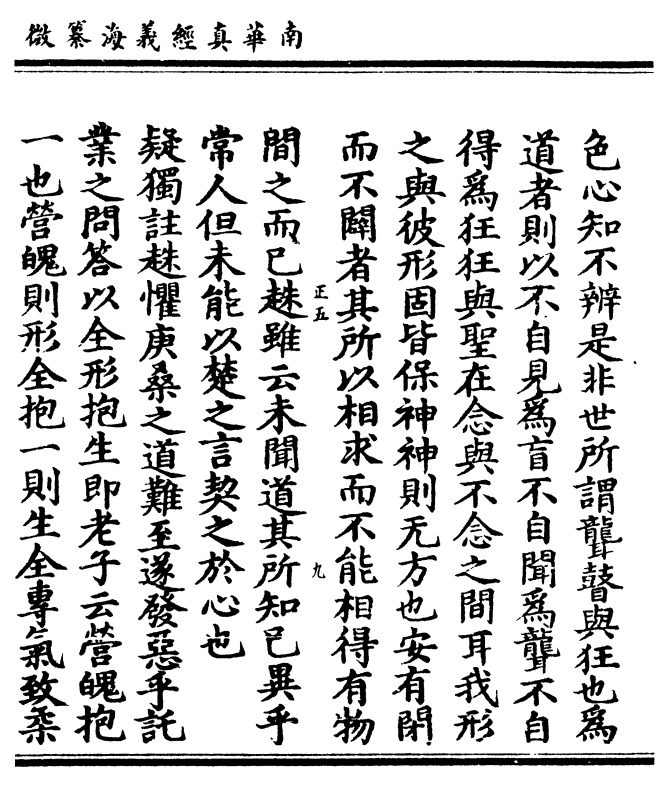 南華真經義海纂微
色心知不辨是非世所謂聾瞽與狂也為
道者則以不自見為盲不自聞為聾不自
得為狂狂與聖在念與不念之間耳我形
之與彼形固皆保神神則无方也安有閉
而不闢者其所以相求而不能相得有物
正五
九
間之而已趎雖云未聞道其所知已異乎
常人但未能以楚之言契之於心也
疑獨註趎懼庚桑之道難至遂發惡乎託
業之問答以全形抱生即老子云營魄抱
一也營魄則形全抱一則生全專氣致柔